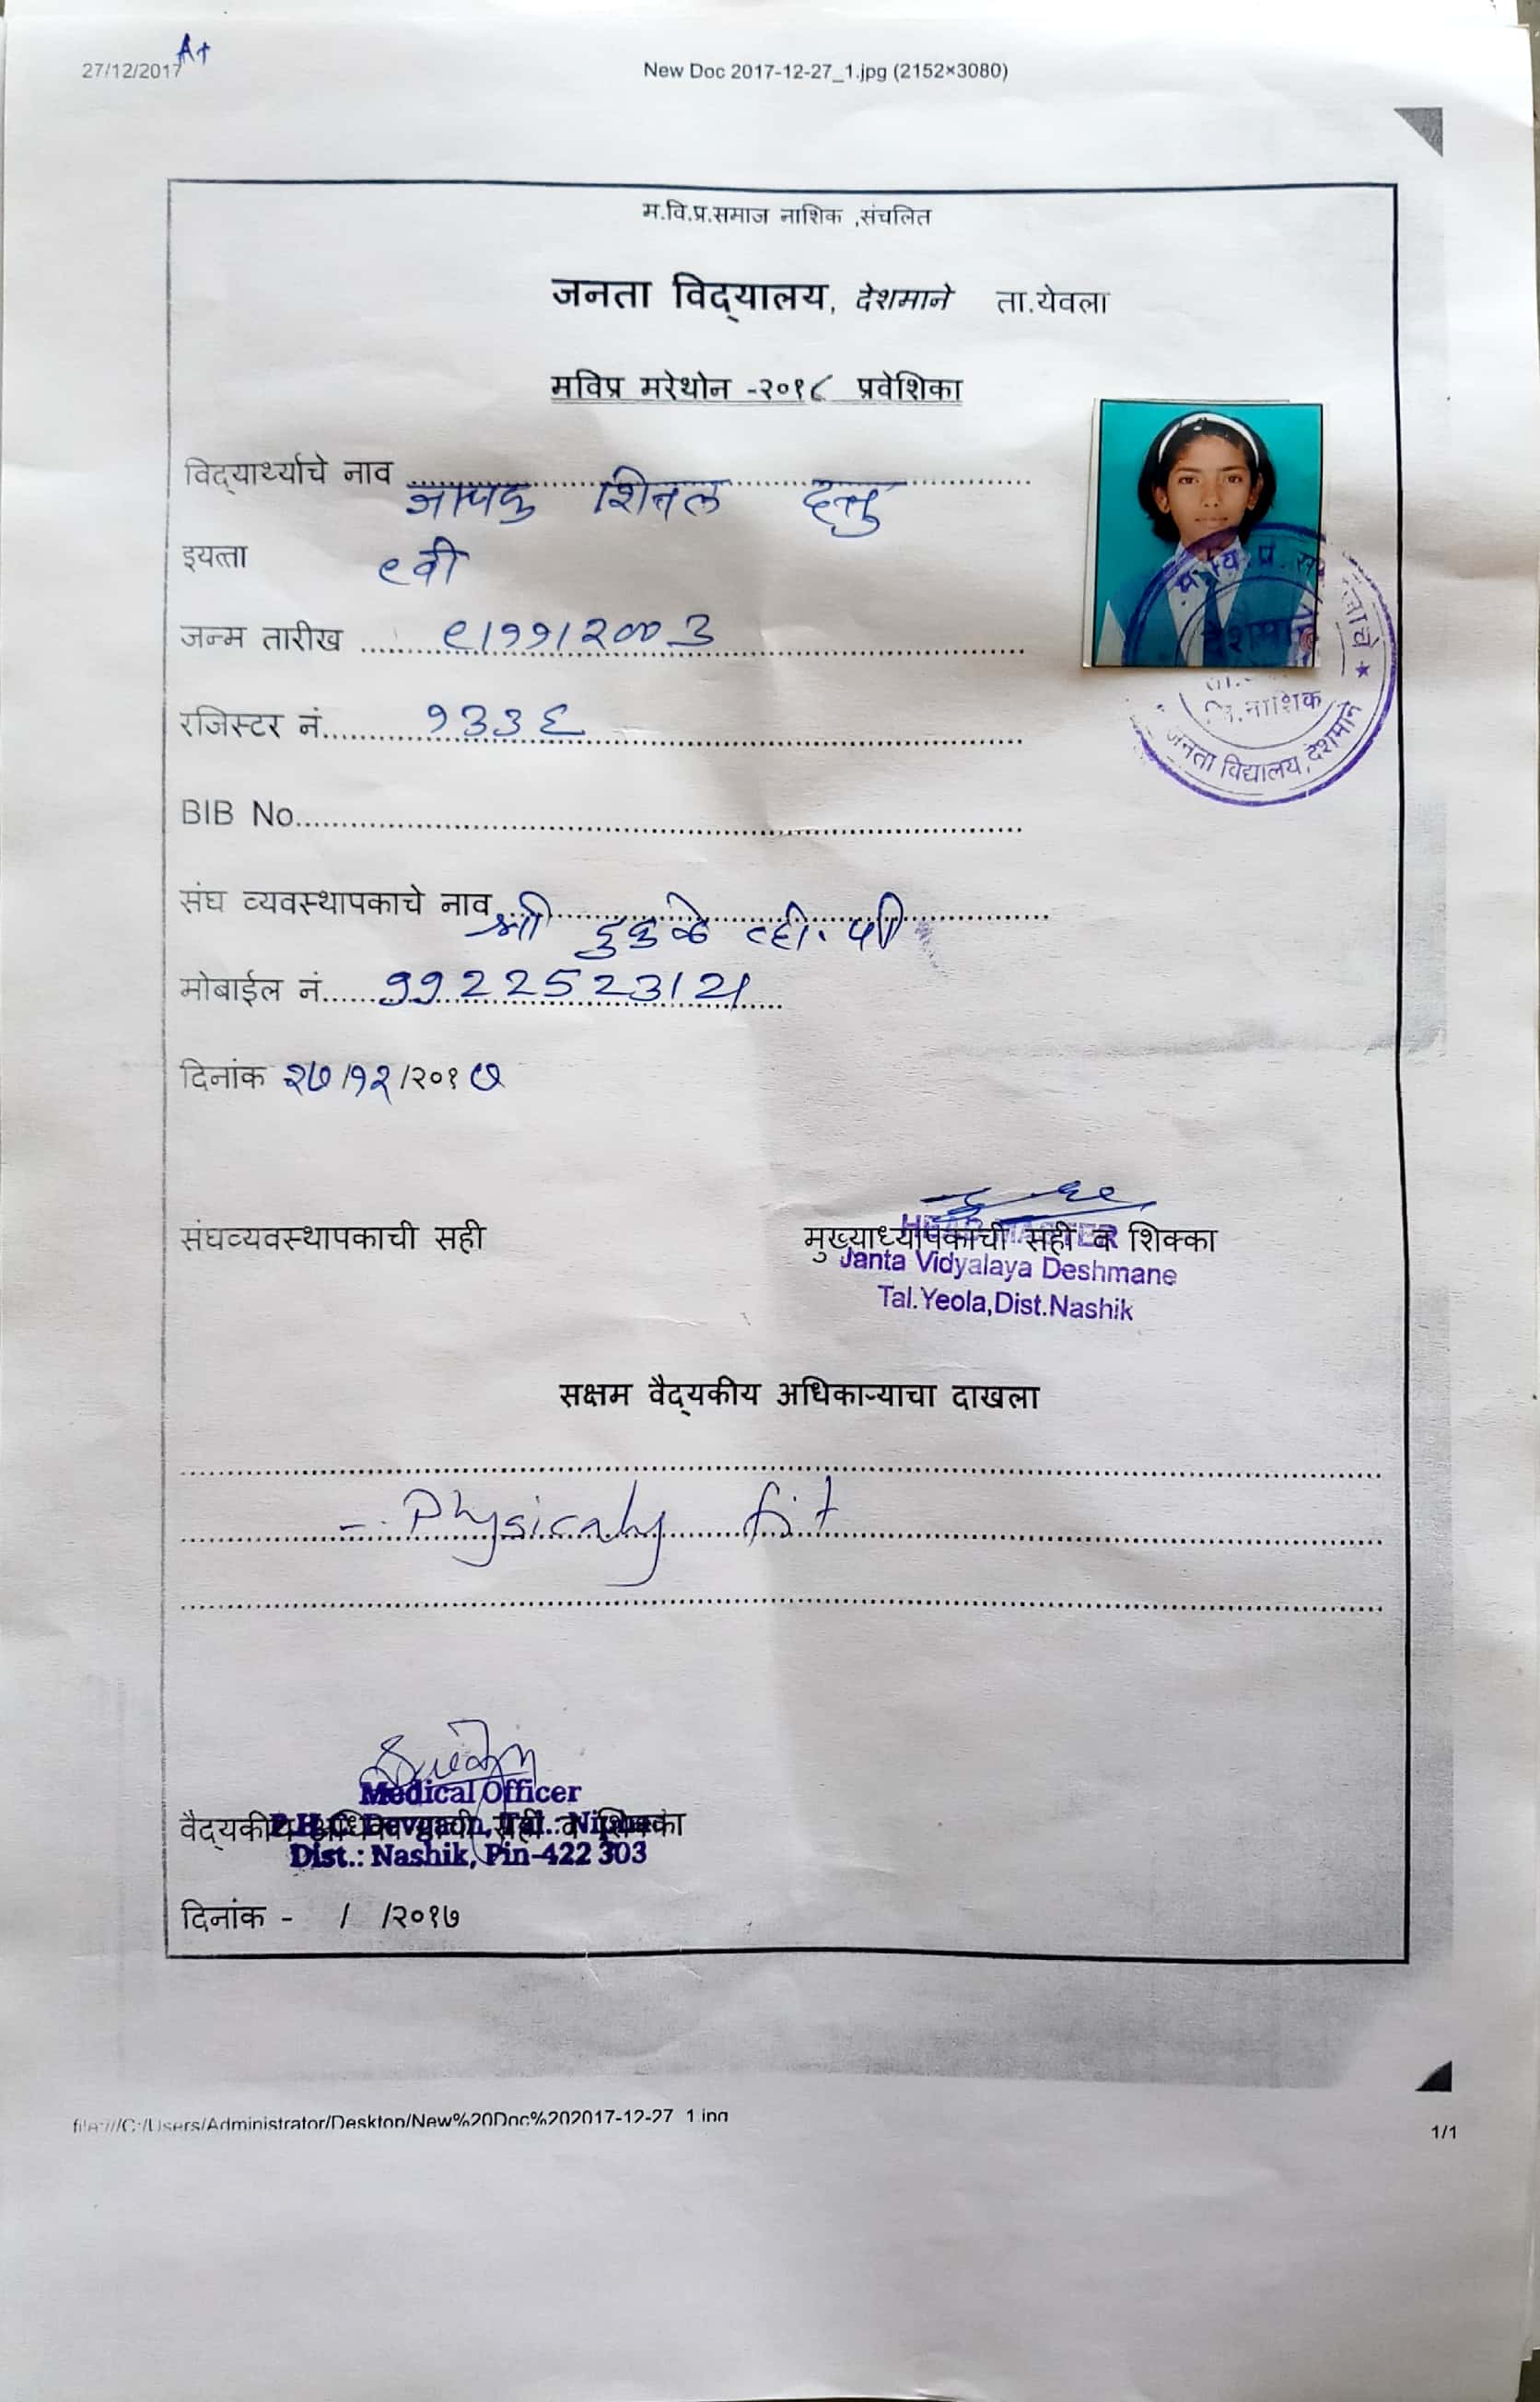 A+
27/12/2017 New Doc 2017-12-27_1.jpg (2152×3080)
म.वि.प्र.समाज नाशिक ,संचलित
जनता विद्यालय, देशमाने ता.येवला
मविप्र मरेथोन -२०१८ प्रवेशिका
विद्यार्थ्याचे नाव शितल दत्तु
इयत्ता ९वी
जन्म तारीख ९/११/२००३
रजिस्टर नं १३३६
BIB No
संघ व्यवस्थापकाचे नाव श्री व्ही. पी
मोबाईल नं 9922523121
दिनांक २७/१२/२०१७
संघव्यवस्थापकाची सही
मुख्याध्यापकाची सही व शिक्का
HEAD MASTER
Janta Vidyalaya Deshmane
Tal.Yeola,Dist.Nashik
म.वि.प्र.
देशमाने
नाशिक
जनता विद्यालय, देशमाने
सक्षम वैद्यकीय अधिकाऱ्याचा दाखला
- Physicaly fit
Medical Officer
वैद्यकीय अधिकाऱ्याची सही व शिक्का
P.H.C. Devgaon, Tal.: Niphad
Dist.: Nashik, Pin-422 303
दिनांक - / /२०१७
file:///C:/Users/Administrator/Desktop/New%20Doc%202017-12-27_1.jpg 1/1